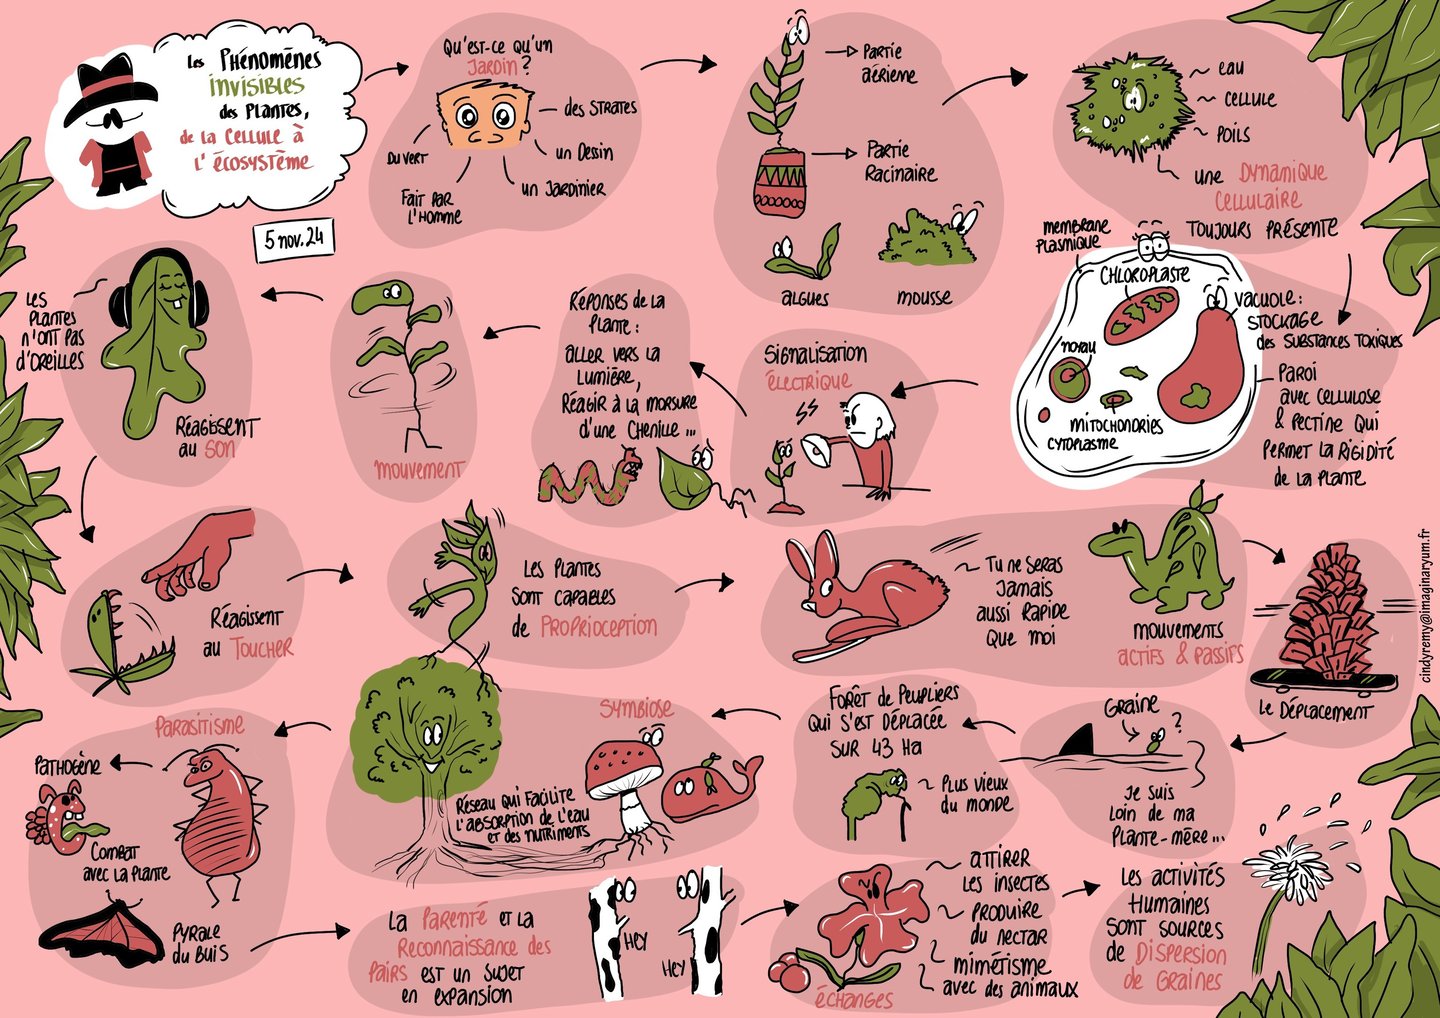 Les Phénomènes
invisibles
des plantes,
de la cellule à
l'écosystème
5 nov. 24
Qu'est-ce qu'un
Jardin ?
du vert
Fait par
l'Homme
des strates
un dessin
un jardinier
Partie
aérienne
Partie
Racinaire
algues
mousse
eau
cellule
poils
une dynamique
cellulaire
toujours présente
membrane
plasmique
chloroplaste
noyau
mitochondries
cytoplasme
vacuole :
stockage
des substances toxiques
Paroi
avec cellulose
& pectine qui
permet la rigidité
de la plante
Signalisation
électrique
Réponses de la
plante :
aller vers la
lumière,
Réagir à la morsure
d'une chenille...
mouvement
Les
plantes
n'ont pas
d'oreilles
Réagissent
au son
Réagissent
au Toucher
Les plantes
sont capables
de proprioception
Tu ne seras
jamais
aussi rapide
que moi
mouvements
actifs & passifs
Le déplacement
Graine
?
Je suis
loin de ma
plante-mère...
Forêt de peupliers
qui s'est déplacée
sur 43 ha
Plus vieux
du monde
Symbiose
Réseau qui facilite
l'absorption de l'eau
et des nutriments
Parasitisme
Pathogène
Combat
avec la plante
Pyrale
du buis
La parenté et la
reconnaissance des
pairs est un sujet
en expansion
Hey
Hey
échanges
attirer
les insectes
produire
du nectar
mimétisme
avec des animaux
Les activités
humaines
sont sources
de dispersion
de graines
cindyremy@imaginaryum.fr